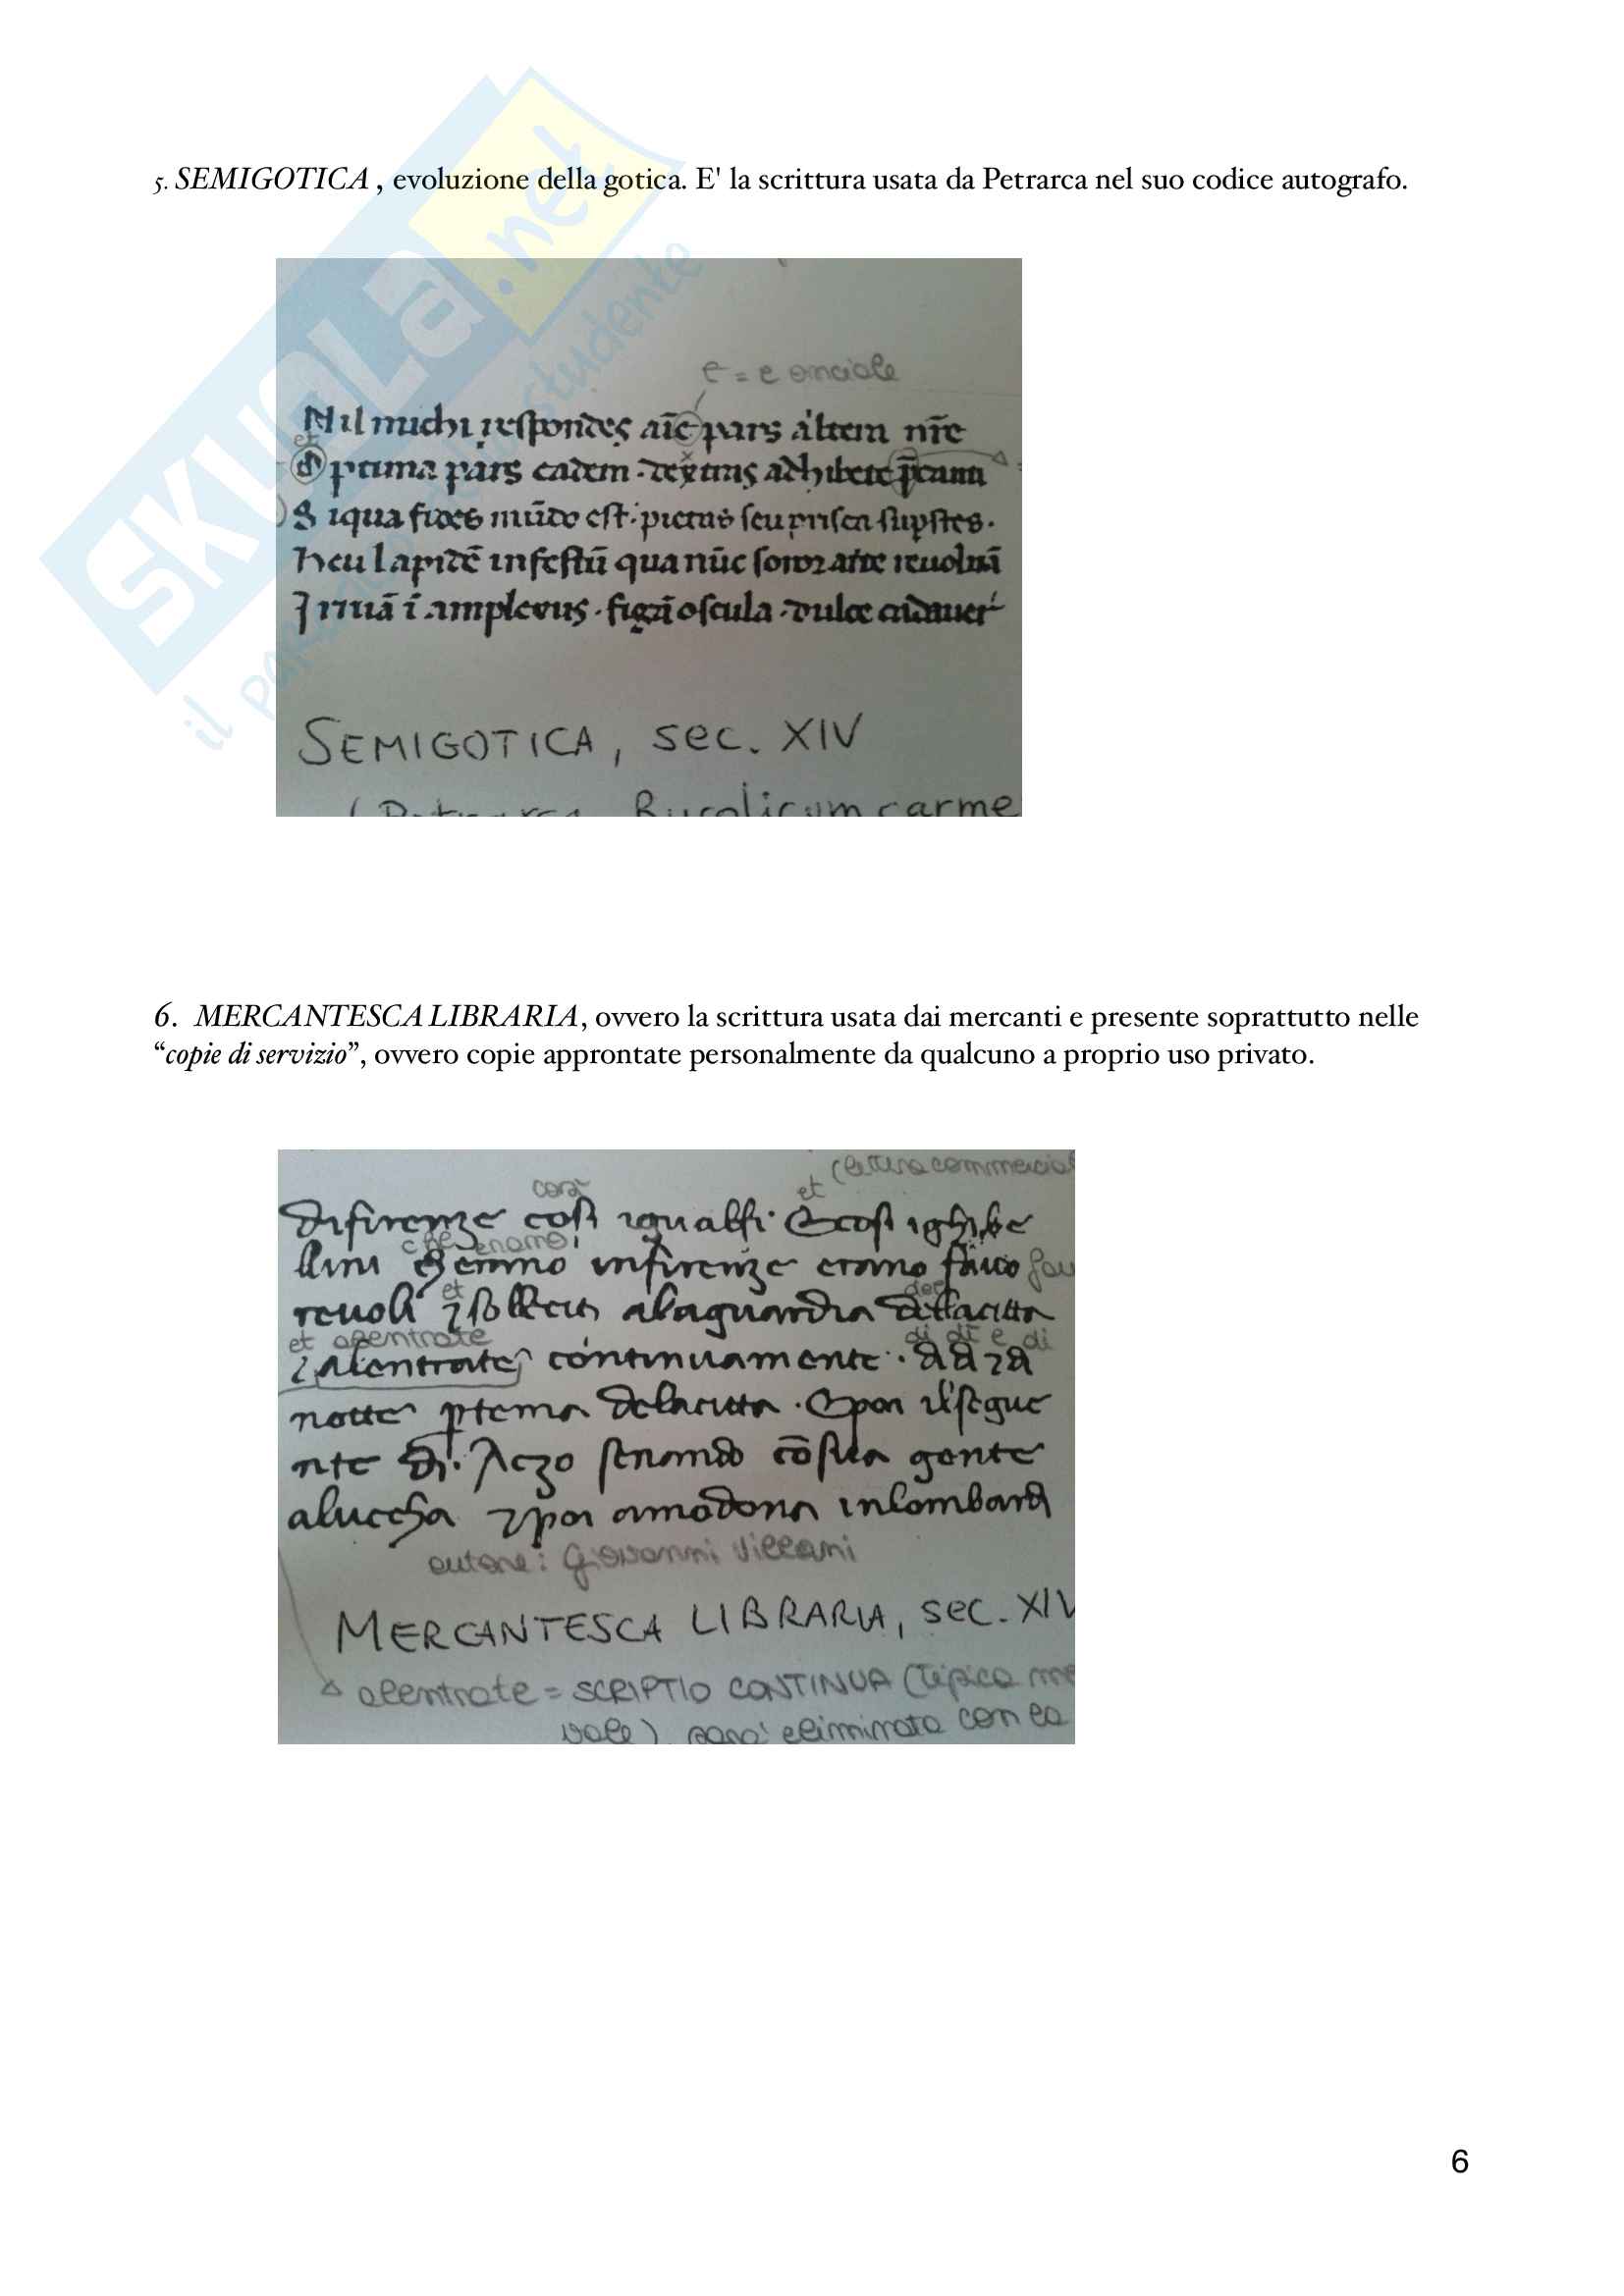 5. SEMIGOTICA , evoluzione della gotica. E' la scrittura usata da Petrarca nel suo codice autografo.
SKUOLa.net
il paradiso dello studente
e = e onciale
Nil michi respondes aīe pars altera nr̄e
et
prima pars eadem
iqua fides mūdo est. pietas seu prisca
heu lapidē infestū qua nūc soror arte
oscula dulce cadauer
SEMIGOTICA, sec. XIV
Bucolicum carme
6. MERCANTESCA LIBRARIA, ovvero la scrittura usata dai mercanti e presente soprattutto nelle
“copie di servizio”, ovvero copie approntate personalmente da qualcuno a proprio uso privato.
(lettera commercial
così et
difirenze cosi igualfi. Et cosi ighibe
che erano
llini infirenze erano
et del
reuoli alaguardia dellacitta
et alentrate di dì e di
alentrate continuamente
notte dellacitta. Epoi ilsegue
nte dì. Azzo cōsua gente
aluccha poi amodona inlombard
autore: Giovanni Villani
MERCANTESCA LIBRARIA, sec. XIV
alentrate = SCRIPTIO CONTINUA (tipica me
vale) sarà eliminata con la
6